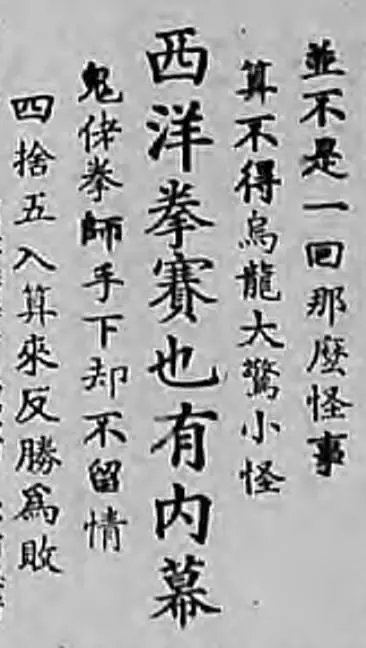 並不是一回那麼怪事
算不得烏龍大驚小怪
西洋拳賽也有内幕
鬼佬拳師手下却不留情
四捨五入算來反勝為敗